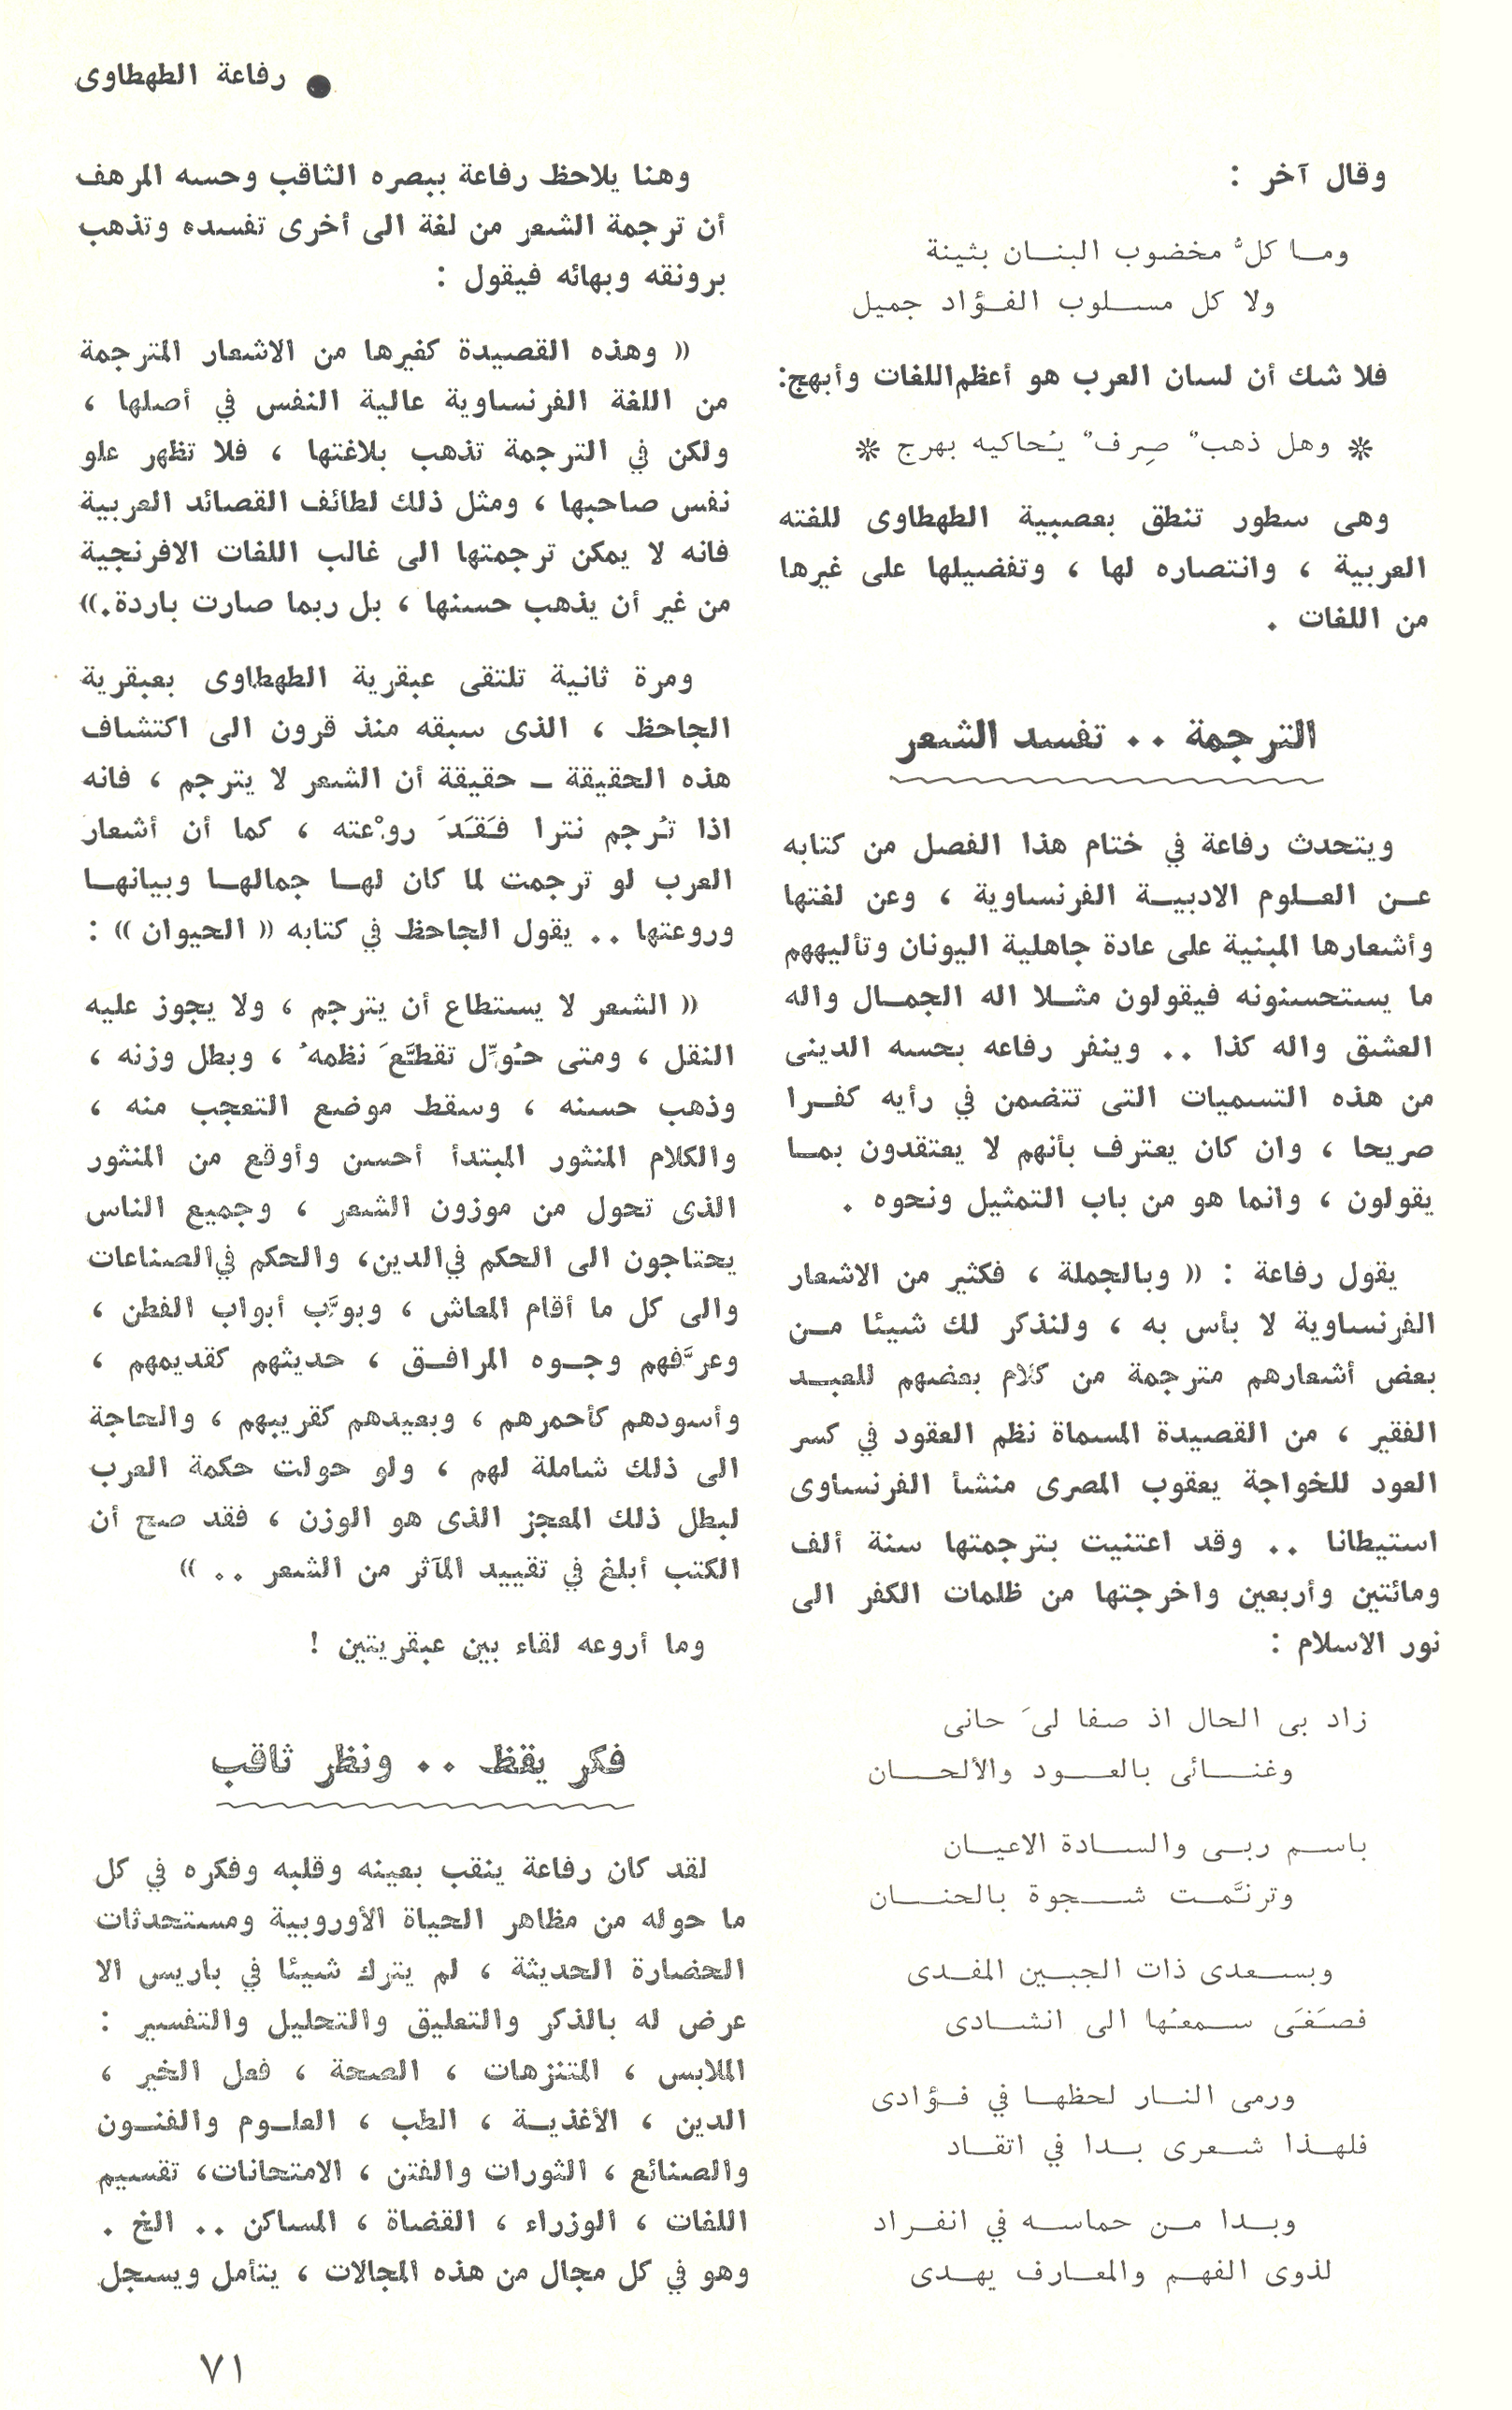 ● رفاعة الطهطاوى
وقال آخر :
ومـا كلُّ مخضوب البنـان بثينة
ولا كل مسـلوب الفـؤاد جميل
فلا شك أن لسان العرب هو أعظم اللغات وأبهج:
* وهل ذهبٌ صِرفٌ يُحاكيه بهرج *
وهى سطور تنطق بعصبية الطهطاوى للغته
العربية ، وانتصاره لها ، وتفضيلها على غيرها
من اللغات .
الترجمة .. تفسد الشعر
ويتحدث رفاعة في ختام هذا الفصل من كتابه
عـن العـلوم الادبيـة الفرنساوية ، وعن لغتها
وأشعارها المبنية على عادة جاهلية اليونان وتأليههم
ما يستحسنونه فيقولون مثـلا اله الجمـال واله
العشق واله كذا .. وينفر رفاعه بحسه الدينى
من هذه التسميات التى تتضمن في رأيه كفـرا
صريحا ، وان كان يعترف بأنهم لا يعتقدون بمـا
يقولون ، وانما هو من باب التمثيل ونحوه .
يقول رفاعة : « وبالجملة ، فكثير من الاشعار
الفرنساوية لا بأس به ، ولنذكر لك شيئا مـن
بعض أشعارهم مترجمة من كلام بعضهم للعبـد
الفقير ، من القصيدة المسماة نظم العقود في كسر
العود للخواجة يعقوب المصرى منشأ الفرنساوى
استيطانا .. وقد اعتنيت بترجمتها سنة ألف
ومائتين وأربعين واخرجتها من ظلمات الكفر الى
نور الاسلام :
زاد بى الحال اذ صفا لىَ حانى
وغنـائى بالعـود والألحـان
باسـم ربـى والسـادة الاعيـان
وترنَّمـت شـجوة بالحنـان
وبسـعدى ذات الجبـين المفـدى
فصَغَى سـمعُها الى انشـادى
ورمى النـار لحظهـا في فـؤادى
فلهـذا شـعرى بـدا في اتقـاد
وبـدا مـن حماسـه في انفـراد
لذوى الفهـم والمعـارف يهـدى
وهنا يلاحظ رفاعة ببصره الثاقب وحسه المرهف
أن ترجمة الشعر من لغة الى أخرى تفسده وتذهب
برونقه وبهائه فيقول :
« وهذه القصيدة كغيرها من الاشعار المترجمة
من اللغة الفرنساوية عالية النفس في أصلها ،
ولكن في الترجمة تذهب بلاغتها ، فلا تظهر علو
نفس صاحبها ، ومثل ذلك لطائف القصائد العربية
فانه لا يمكن ترجمتها الى غالب اللغات الافرنجية
من غير أن يذهب حسنها ، بل ربما صارت باردة.»
ومرة ثانية تلتقى عبقرية الطهطاوى بعبقرية
الجاحظ ، الذى سبقه منذ قرون الى اكتشاف
هذه الحقيقة ـ حقيقة أن الشعر لا يترجم ، فانه
اذا تُرجم نثرا فَقَدَ روْعته ، كما أن أشعار
العرب لو ترجمت لما كان لهـا جمالهـا وبيانهـا
وروعتها .. يقول الجاحظ في كتابه « الحيوان » :
« الشعر لا يستطاع أن يترجم ، ولا يجوز عليه
النقل ، ومتى حُوِّل تقطَّعَ نظمهُ ، وبطل وزنه ،
وذهب حسنه ، وسقط موضع التعجب منه ،
والكلام المنثور المبتدأ أحسن وأوقع من المنثور
الذى تحول من موزون الشعر ، وجميع الناس
يحتاجون الى الحكم في الدين، والحكم في الصناعات
والى كل ما أقام المعاش ، وبوَّب أبواب الفطن ،
وعرَّفهم وجـوه المرافـق ، حديثهم كقديمهم ،
وأسودهم كأحمرهم ، وبعيدهم كقريبهم ، والحاجة
الى ذلك شاملة لهم ، ولو حولت حكمة العرب
لبطل ذلك المعجز الذى هو الوزن ، فقد صح أن
الكتب أبلغ في تقييد المآثر من الشعر .. »
وما أروعه لقاء بين عبقريتين !
فكر يقظ .. ونظر ثاقب
لقد كان رفاعة ينقب بعينه وقلبه وفكره في كل
ما حوله من مظاهر الحياة الأوروبية ومستحدثات
الحضارة الحديثة ، لم يترك شيئا في باريس الا
عرض له بالذكر والتعليق والتحليل والتفسير :
الملابس ، المتنزهات ، الصحة ، فعل الخير ،
الدين ، الأغذيـة ، الطب ، العلـوم والفنـون
والصنائع ، الثورات والفتن ، الامتحانات، تقسيم
اللغات ، الوزراء ، القضاة ، المساكن .. الخ .
وهو في كل مجال من هذه المجالات ، يتأمل ويسجل
٧١